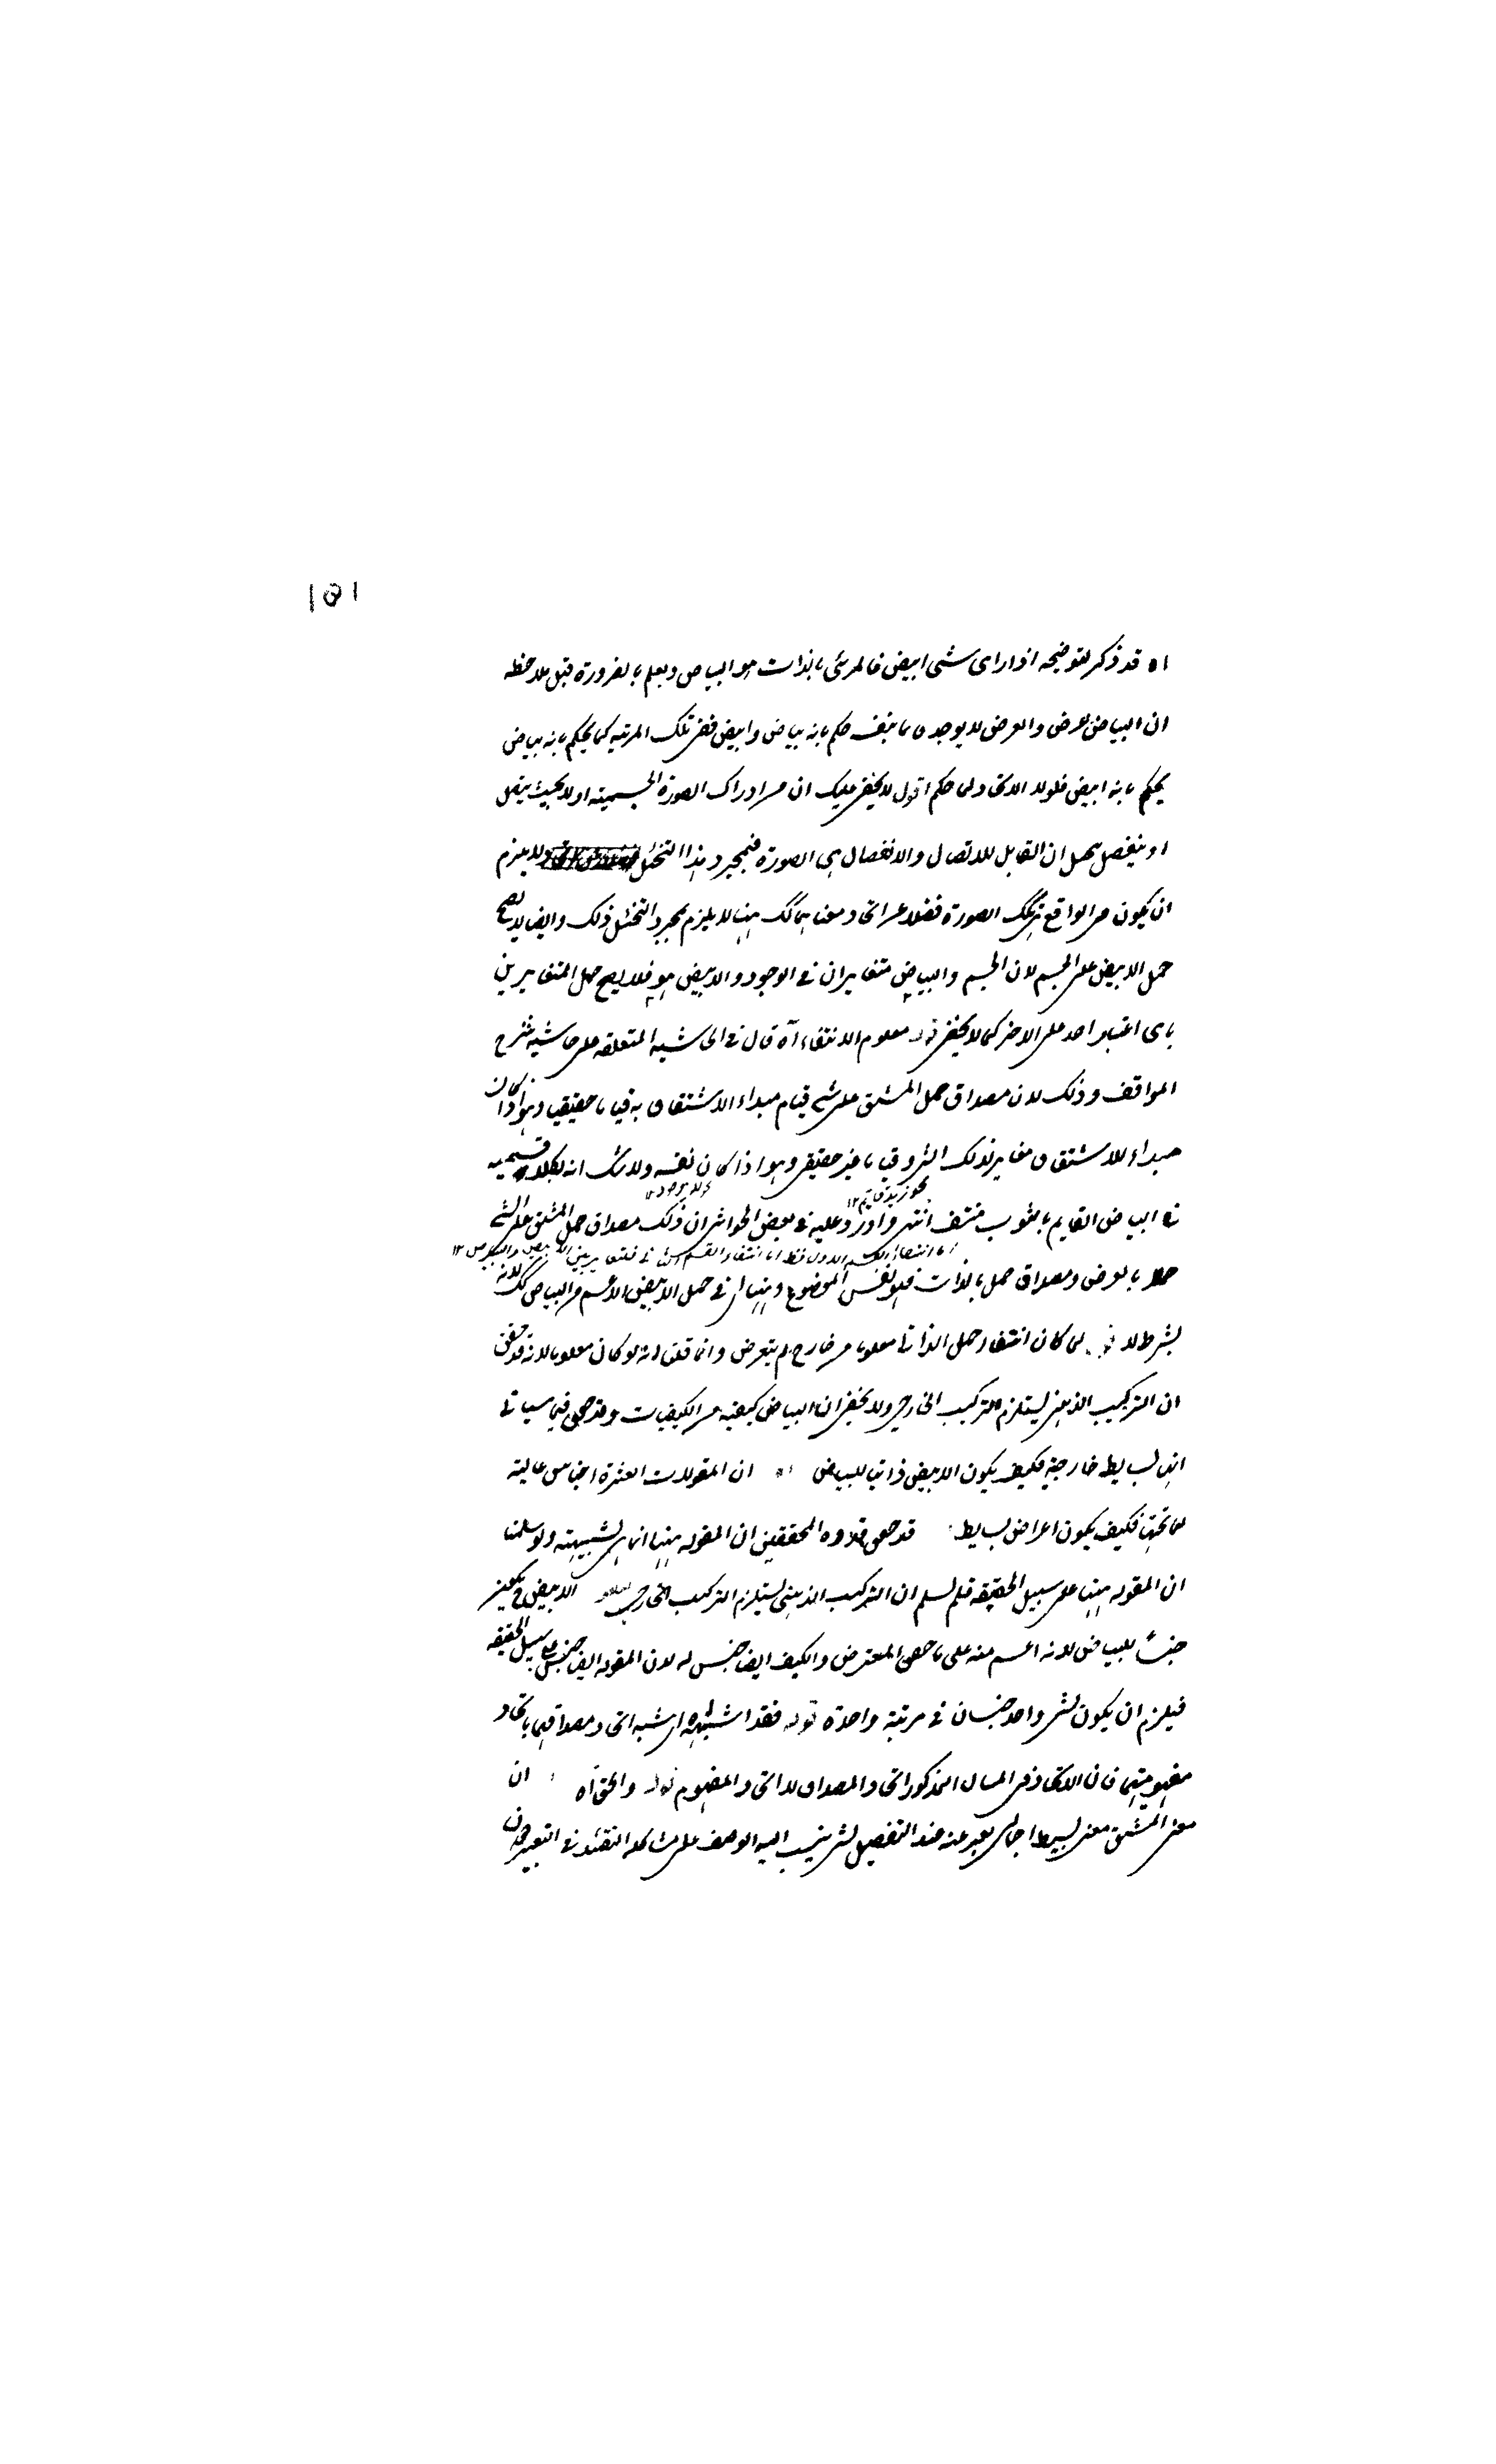 ١٥١
اه قد ذكر لتوضيحه اذا راى شئ ابيض فالمرئى بالذات هو البياض ويعلم بالضرورة قبل ملاحظة
ان البياض عرض والعرض لا يوجد قائما بنفسه حكم بانه بياض وابيض ففى تلك المرتبة كما يحكم بانه بياض
يحكم بانه ابيض فلولا الاتحاد لما حكم اقول لا يخفى عليك ان من ادراك الصورة الجسمية اولا بحيث يتصل
او ينفصل يحصل ان القابل للاتصال والانفصال هى الصورة فبمجرد هذا التخيل ولا يلزم
ان يكون فى الواقع تلك الصورة فضلا عن اتحاد معناهما كك ههنا لا يلزم بمجرد التخيل ذلك وايضا لا يصح
حمل الابيض على الجسم لان الجسم والبياض متغايران فى الوجود والابيض هو فلا يصح حمل المتغايرين
باى اعتبار احد على الاخر كما لا يخفى قوله معلوم الانتفاء آه قال فى الحاشية المتعلقة على حاشية شرح
المواقف وذلك لان مصداق حمل المشتق على شئ قيام مبداء الاشتقاق به قياما حقيقيا وهو اذا كان
مبداء للاشتقاق مغاير لذلك الشئ وقياما غير حقيقى وهو اذا كان نفسه ولا شك انه بكلا قسميه
فى البياض القايم بالثوب منتف انتهى واورد عليه فى بعض الحواشى ان ذلك مصداق حمل المشتق على الشئ
اما انتفاء القسم الاول فظ اما انتفاء القسم الثانى فلتغاير بين الابيض و ١٢
حملا بالعرض ومصداق حمل بالذات فهو نفس الموضوع وههنا فى حمل الابيض الاعم من البياض كك لانه
بشرط لا قوله لما كان انتفاء حمل الذاتى معلوما من خارج لم يتعرض وانما قلنا انه لو كان معلوما لانه قد حقق
ان التركيب الذهنى يستلزم التركيب الخارجى ولا يخفى ان البياض كيفية من الكيفيات وقد حقق فيما سياتى
انها بسايط خارجية فكيف يكون الابيض ذاتيا للبياض اه ان المقولات العشرة اجناس عالية
لما تحتها فكيف يكون اعراض بسايط قد حقق قدوة المحققين ان المقولة ههنا انما هى لشبيهة ولو سلمنا
ان المقولة ههنا على سبيل الحقيقة فلم نسلم ان التركيب الذهنى يستلزم التركيب الخارجى الابيض
جنسا للبياض لانه اعم منه على ما حقق المعترض والكيف ايضا جنس له لان المقولة ايضا جنس على سبيل الحقيقة
فيلزم ان يكون لشئ واحد جنسان فى مرتبة واحدة قوله فقد اشتبه اى اشتبه اتحاد مصداقهما باتحاد
مفهوميهما فان الاتحاد فى المثال المذكور اتحاد المصداق لا اتحاد المفهوم قوله والحق آه ان
معنى المشتق معنى بسيط اجمالى يعبر عنه عند التفصيل لشئ ينسب اليه الوصف على مشاكلة التقئيد فى التعبير